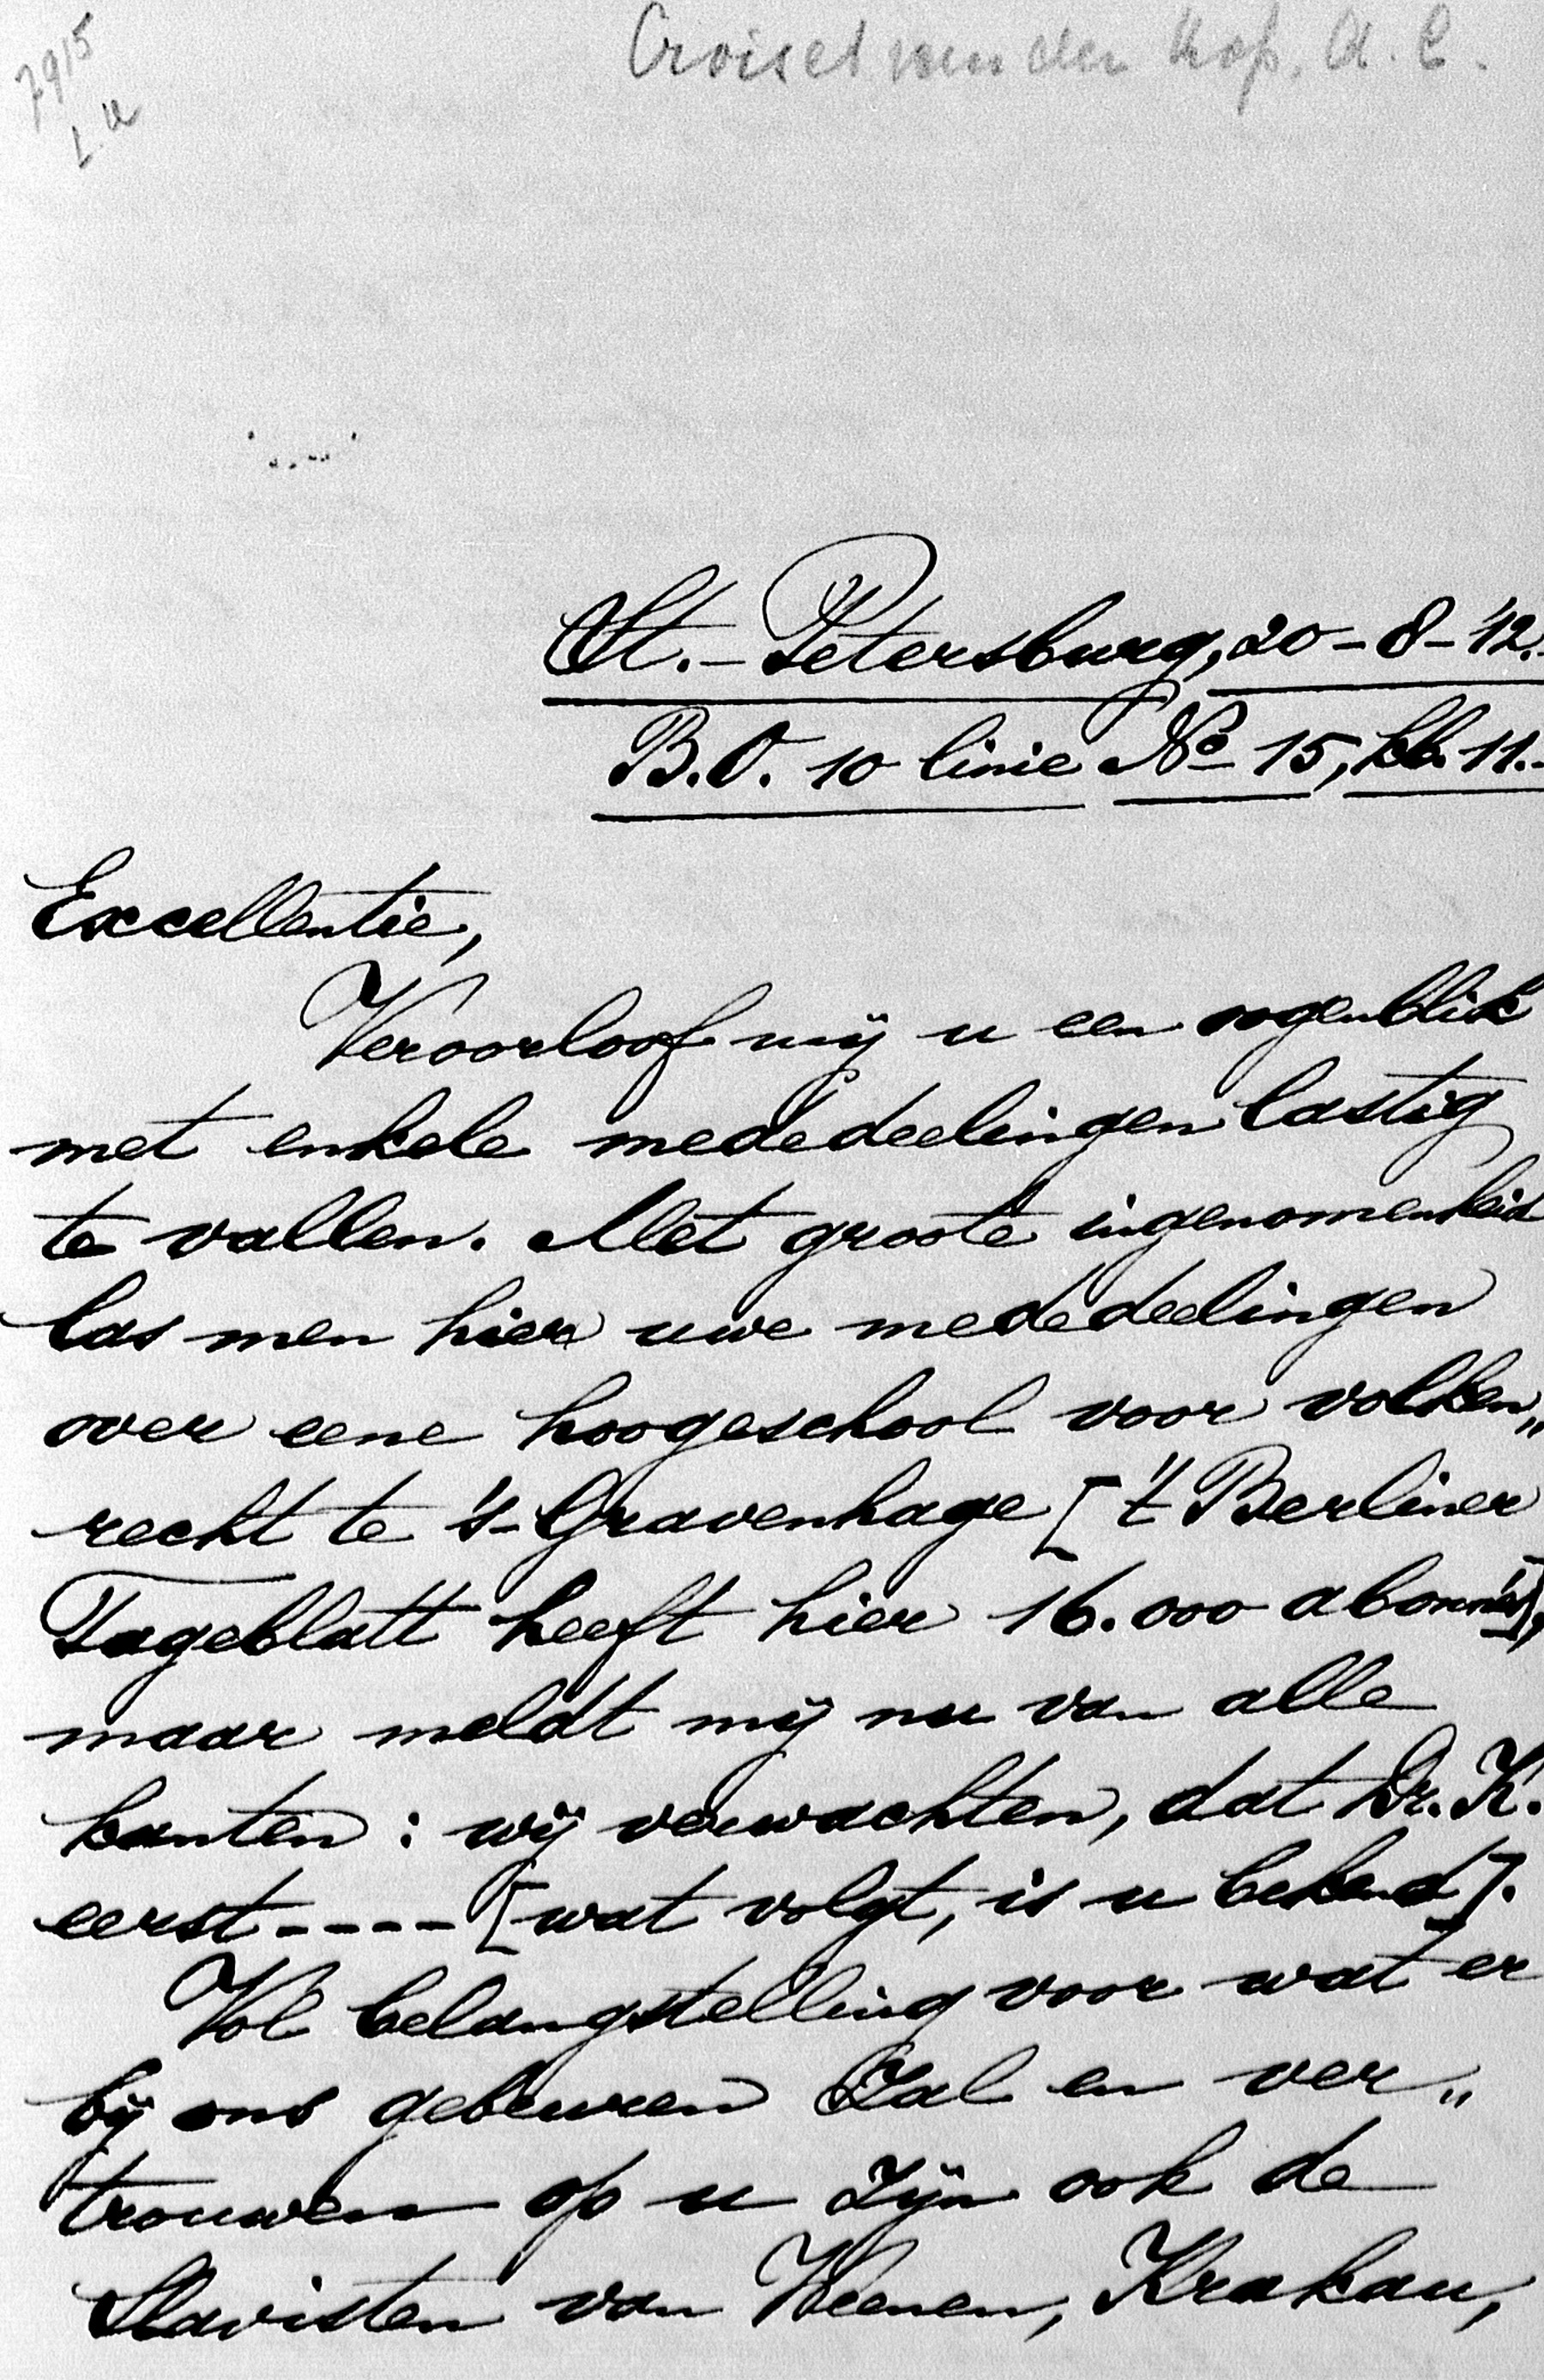 7915
L. a
Croiset van der Kop, A. C.
St.-Petersburg, 20-8-'12.-
B.O. 10 linie No 15, kb. 11.-
Excellentie,
Veroorloof mij u een oogenblik
met enkele mededeelingen lastig
te vallen. Met groote ingenomenheid
las men hier uwe mededeelingen
over eene hoogeschool voor volken„
recht te 's-Gravenhage ['t Berliner
Tageblatt heeft hier 16.000 abonné's],
maar meldt mij nu van alle
kanten: wij verwachten, dat Dr. K.
eerst---- [wat volgt, is u bekend].
Vol belangstelling voor wat er
bij ons gebeuren zal en ver„
trouwen op u zijn ook de
Slavisten van Weenen, Krakau,